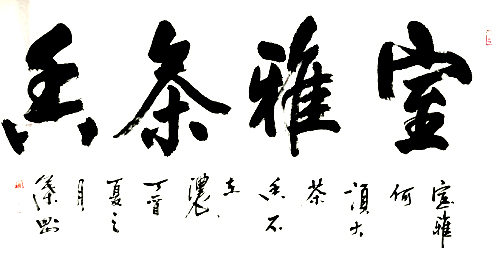 室雅茶香
室雅
何
須大
茶
香不
在
濃
丁酉
夏之
月